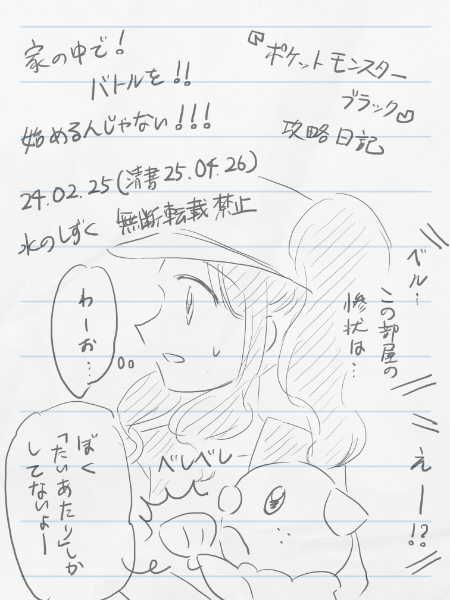 『ポケットモンスター
ブラック』
攻略日記
家の中で！
バトルを！！
始めるんじゃない！！！
24.02.25(清書25.04.26)
水のしずく 無断転載禁止
ベル…
この部屋の
惨状は…
えー！？
わーお…
べしべしー
ぼく
「たいあたり」しか
してないよー